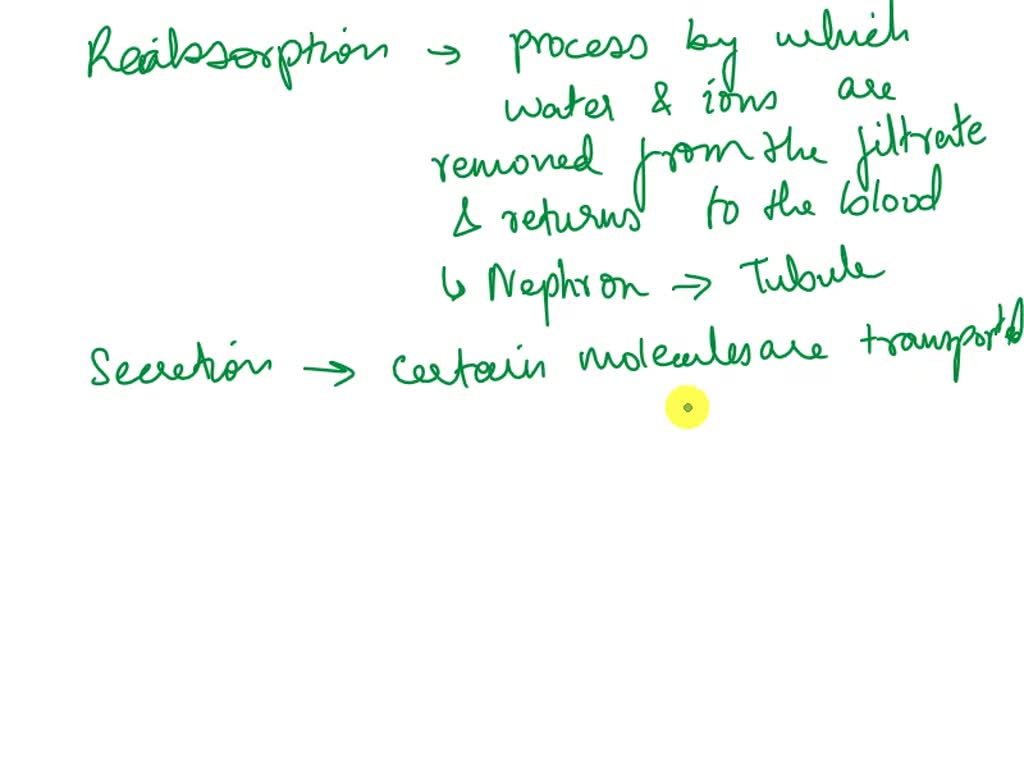 Reabsorption → process by which
water & ions are
removed from the filtrate
& returns to the blood
↳ Nephron → Tubule
Secretion → certain molecules are transported